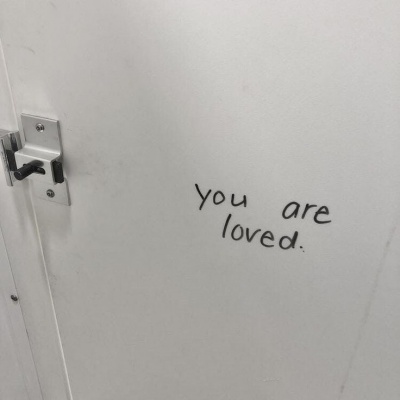 you are
loved.